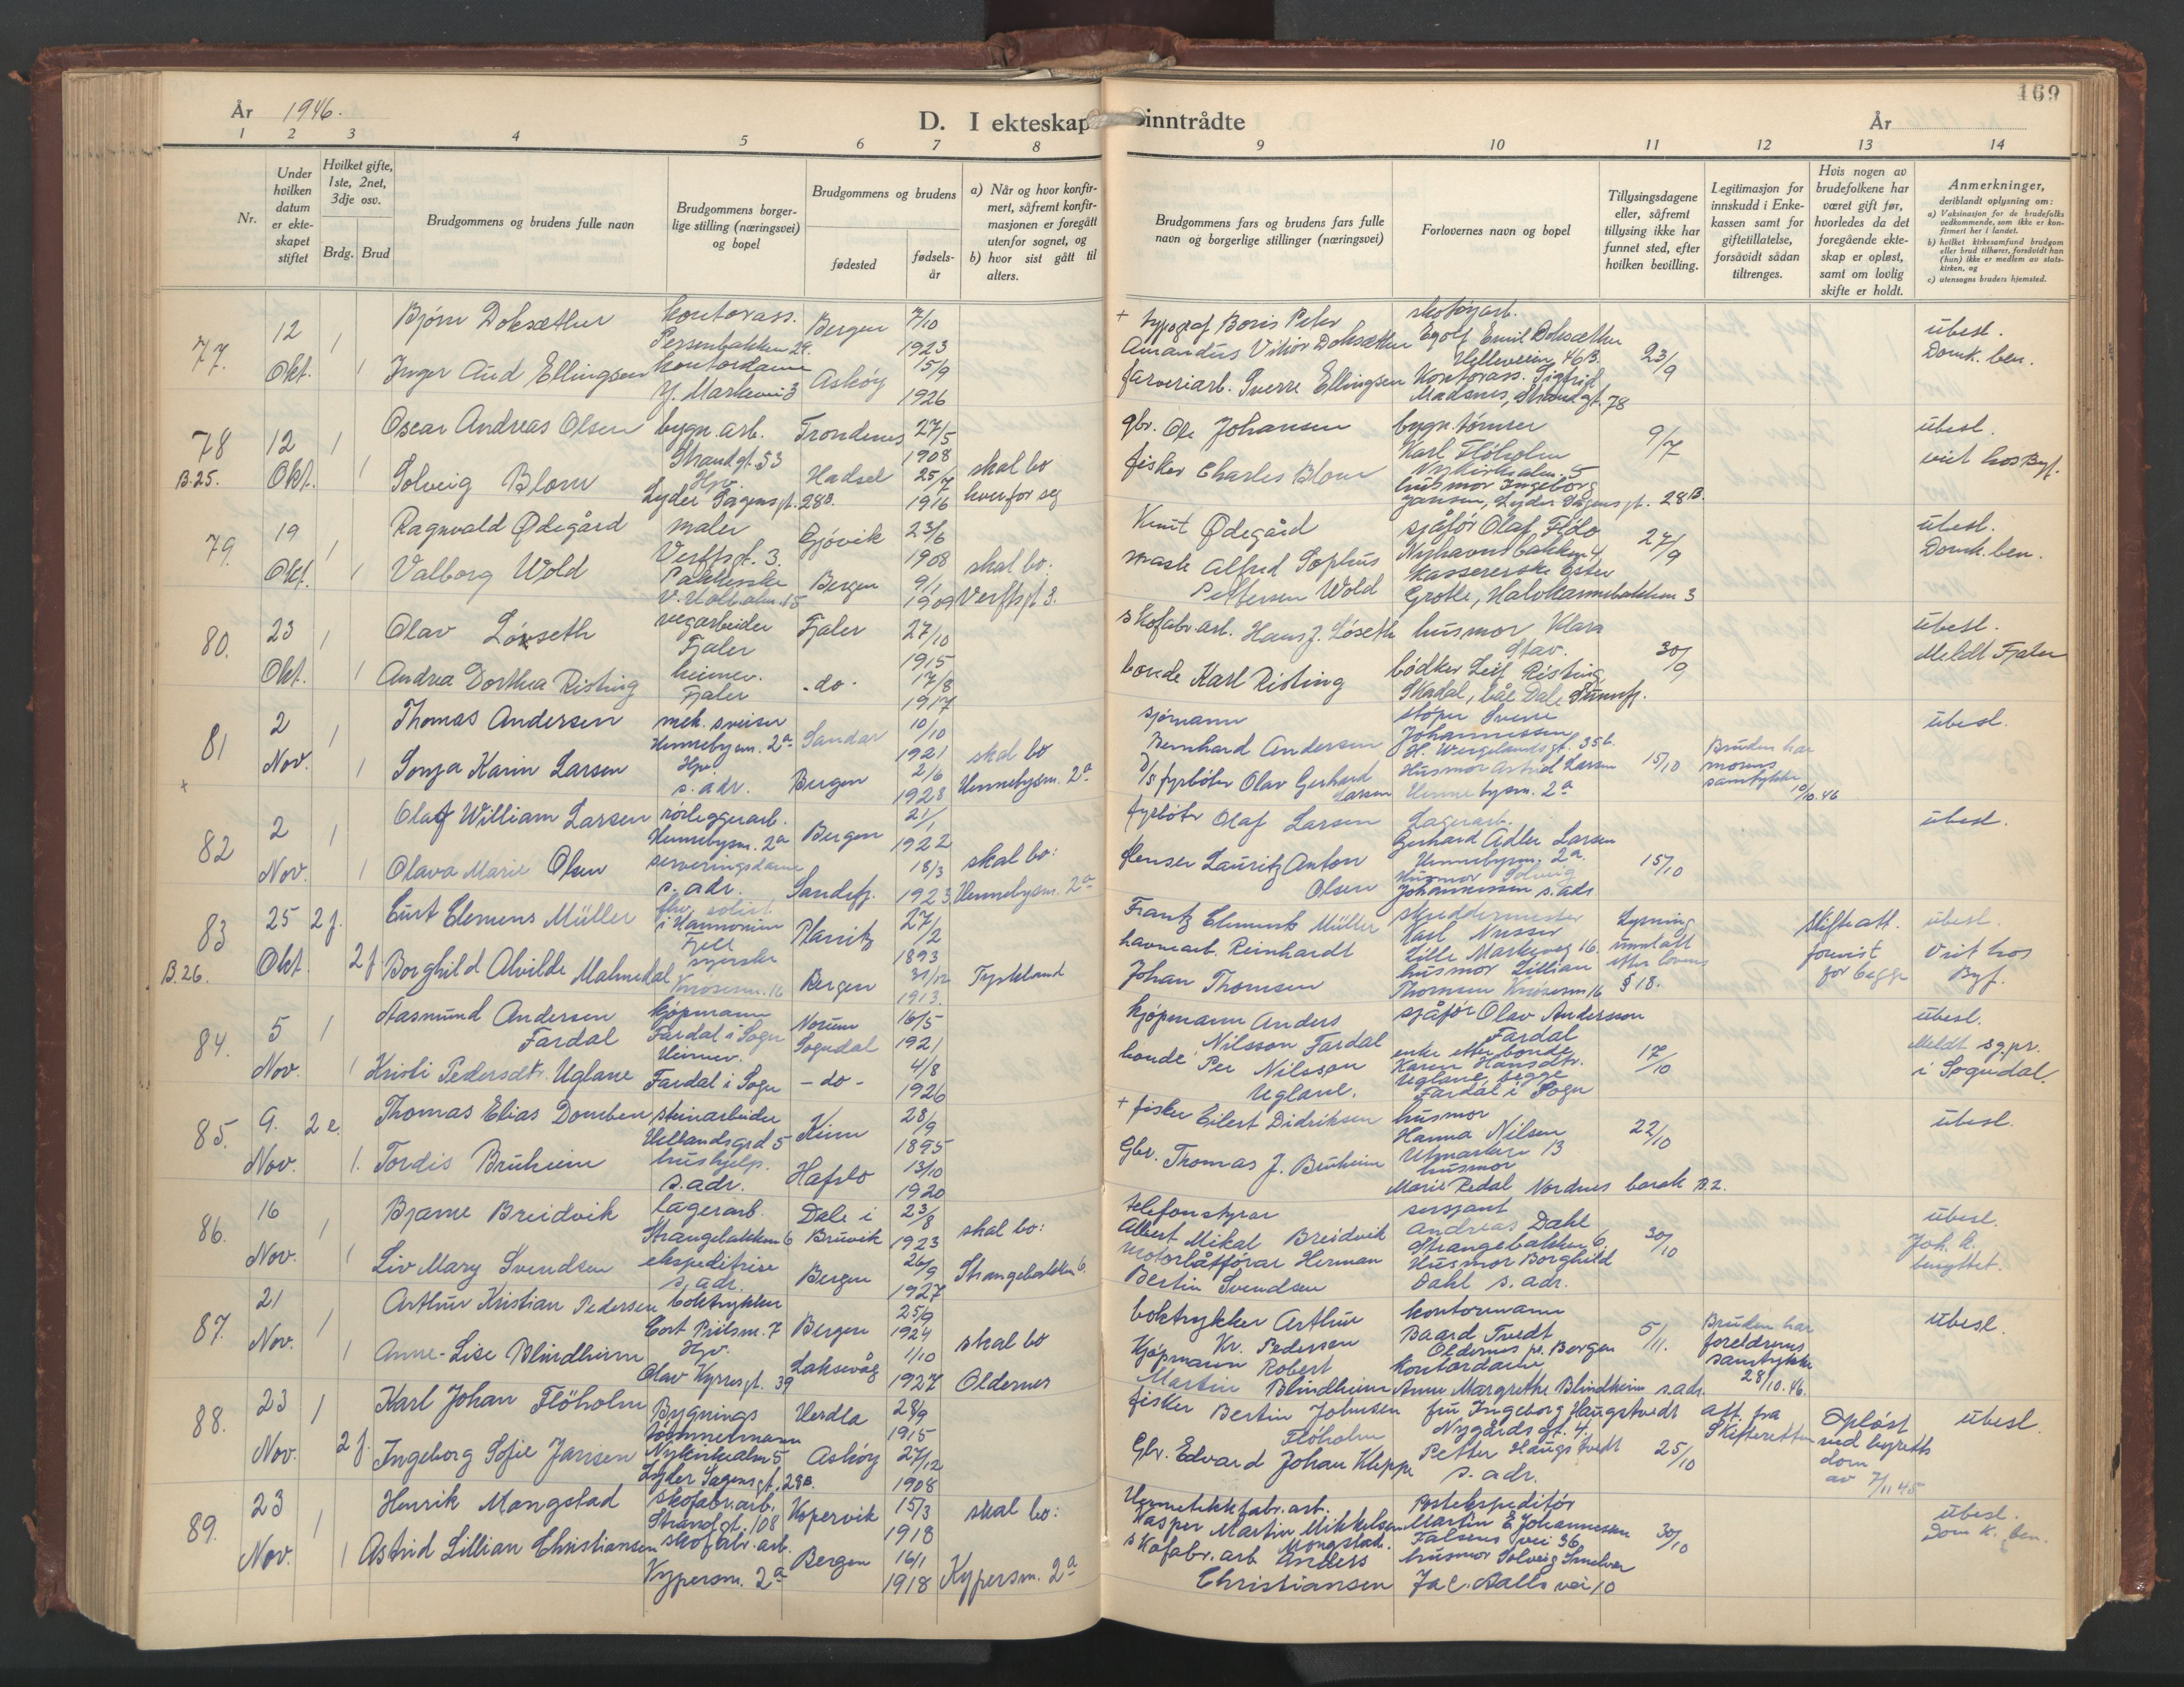 År 1946.
D. I ekteskap inntrådte
År
169
1 2 3 4 5 6 7 8 9 10 11 12 13 14
Nr.
Under hvilken datum er ekteskapet stiftet
Hvilket gifte, 1ste, 2net, 3dje osv.
Brdg. Brud
Brudgommens og brudens fulle navn
Brudgommens borgerlige stilling (næringsvei) og bopel
Brudgommens og brudens
fødested
fødselsår
a) Når og hvor konfirmert, såfremt konfirmasjonen er foregått utenfor sognet, og
b) hvor sist gått til alters.
Brudgommens fars og brudens fars fulle navn og borgerlige stillinger (næringsvei)
Forlovernes navn og bopel
Tillysingsdagene eller, såfremt tillysing ikke har funnet sted, efter hvilken bevilling.
Legitimasjon for innskudd i Enkekassen samt for giftetillatelse, forsåvidt sådan tiltrenges.
Hvis nogen av brudefolkene har været gift før, hvorledes da det foregående ekteskap er opløst, samt om lovlig skifte er holdt.
Anmerkninger, deriblandt oplysning om:
a) Vaksinasjon for de brudefolks vedkommende, som ikke er konfirmert her i landet.
b) hvilket kirkesamfund brudgom eller brud tilhører, forsåvidt han (hun) ikke er medlem av statskirken, og
c) utensogns bruders hjemsted.
77. 12 Okt. 1 1
Bjørn Doksæther
kontorass. Persenbakken 29.
Bergen 7/10 1923
Inger Aud Ellingsen
kontordame Y. Markevei 3
Askøy 15/9 1926
+ typograf Boris Peter Amandus Viktor Doksæther
farveriarb. Sverre Ellingsen
skotøyarb. Egolf Emil Doksæther Helleveien 46B.
Kontorass. Sigfrid Madsnes, Strandgt. 78
23/9
ubesl. Domk. ben.
78 B.25. 12 Okt. 1 1
Oscar Andreas Olsen
bygn. arb. Strandgt. 53
Trondenes 27/5 1908
Solveig Blom
Hpv. Lyder Sagensgt. 28B.
Hadsel 25/7 1916
skal bo hver for seg
gbr. Ole Johansen
fisker Charles Blom
bygn. tømrer Karl Fløholm Nykirkealm. 5
husmor Ingeborg Jansen, Lyder Sagensgt. 28B.
9/7
ubesl. viet hos Byf.
79. 19 Okt. 1 1
Ragnvald Ødegård
maler Verftsgt. 3.
Gjøvik 23/6 1908
Valborg Wold
Pakkerske
Bergen 9/1 1909
skal bo: Verftsgt 3.
Knut Ødegård
mask Alfred Sophus Pettersen Wold
sjåfør Olaf Flölo Nyhavnsbakken 4,
Kassererske Ester Grotle, Halvkannebakken 3
27/9
ubesl. Domk. ben.
80. 23 Okt. 1 1
Olav Løseth
vegarbeider Fjaler
Fjaler 27/10 1915
Andrea Dorthea Risting
heimev. Fjaler
-do- 17/8 1917
skofabr. arb. Hans J. Løseth
bonde Karl Risting
husmor Klara Stav.
bødker Leif Risting
Skadal, båe Dale Sunnfj.
30/9
ubesl. Meldt Fjaler
81 + 2 Nov. 1 1
Thomas Andersen
mek. sveiser Hennebysm. 2a
Sandar 10/10 1921
Sonja Karin Larsen
Hpv. s. adr.
Bergen 2/6 1928
skal bo Hennebysm. 2a
sjømann Bernhard Andersen
D/S fyrbøter Olav Gerhard Larsen
støper Sverre Johannessen H. Wergelandsgt. 35b.
Husmor Astrid Larsen Hennebysm. 2a
15/10
Bruden har morens samtykke 10/10. 46
ubesl.
82 2 Nov. 1 1
Olaf William Larsen
rørleggerarb. Hennebysm. 2a
Bergen 21/1 1922
Olava Marie Olsen
serveringsdame s. adr.
Sandefj. 18/3 1923
skal bo: Hennebysm. 2a
fyrbøter Olaf Larsen
flenser Lauritz Anton Olsen
Lagerarb. Gerhard Adler Larsen Hennebysm. 2a.
Husmor Solveig Johannessen s. adr
15/10
ubesl.
83 B.26. 25 Okt. 2 f. 2 f
Curt Clemens Müller
fhv. solist i Harmonien Fjell
Planitz 27/2 1893
Borghild Alvilde Malmedal
syerske
Bergen 31/12 1913.
Tyskland
Frantz Clemens Müller
havnearb. Reinhardt Johan Thomsen
skreddermester Karl Nusser Lille Markeveg 16.
husmor Lillian Thomsen
Lysning unnlatt etter lovens § 18.
Skifteatt. forevist for begge
ubesl. Viet hos Byf.
84. 5 Nov. 1 1
Aasmund Andersen Fardal
kjøpmann Fardal i Sogn
Norum Sogndal 16/5 1921
Kristi Pedersdtr. Uglane
Heimev. Fardal i Sogn
- do - 4/8 1926
Kjøpmann Anders Nilsson Fardal
bonde Per Nilsson Uglane.
sjåfør Olav Andersson Fardal
enke etter bonde Karen Hansdtr. Uglane, begge Fardal i Sogn
17/10
ubesl. Meldt sg.pr. i Sogndal.
85. 9. Nov. 2 e. 1.
Thomas Elias Domben
steinarbeider Hellandsgrd 5
Kinn 28/9 1895
Tordis Bruheim
hushjelp. s. adr.
Hafslo 13/10 1920
+ fisker Eilert Didriksen
Gbr. Thomas J. Bruheim
husmor Hanna Nilsen Utmarken 13
husmor Marie Redal Nordnes barak B.2.
22/10
ubesl.
86. 16 Nov. 1 1
Bjarne Breidvik
lagerarb. Strangebakken 6
Dale i Bruvik 23/8 1923
Liv Mary Svendsen
ekspeditrise s. adr.
Bergen 26/9 1927
skal bo: Strangebakken 6.
telefonstyrar Albert Mikal Breidvik
motorbåtførar Herman Bertin Svendsen
sersjant Andreas Dahl Strangebakken 6.
Husmor Borghild Dahl s. adr.
30/10
ubesl. Joh. k. benyttet.
87. 21 Nov. 1 1
Arthur Kristian Pedersen
boktrykker Cort Piilsm. 7
Bergen 25/9 1924
Anne-Lise Blindheim
Hpv. Olav Kyrresgt. 39
Laksevåg 1/10 1927
skal bo Oldernes
boktrykker Arthur Kr. Pedersen
Kjøpmann Robert Martin Blindheim
kontormann Baard Tvedt Oldernes pr. Bergen
Kontordame Anne Margrethe Blindheim s. adr.
5/11.
Bruden har foreldrenes samtykke 28/10. 46.
ubesl.
88. 23 Nov. 1 2 f.
Karl Johan Flöholm
Bygnings tømmermann Nykirkealm 5
Herdla 28/9 1915
Ingeborg Sofie Jansen
Lyder Sagensgt. 28B.
Askøy 27/12 1908
fisker Bertin Johnsen Flöholm
Gbr. Edvard Johan Kleppe
fru Ingeborg Haugstvedt Nygårdsgt. 4.
Petter Haugstvedt s. adr.
25/10
att. fra Skifteretten
Opløst ved byretts dom av 7/11 45
ubesl.
89. 23 Nov. 1 1
Henrik Mongstad
skofabr. arb. Strandgt. 108
Kopervik 15/3 1918
Astrid Lillian Christiansen
skofabr. arb. Kypersm. 2a
Bergen 16/1 1918
skal bo: Kypersm. 2a
Hermetikkfabr. arb. Kasper Martin Mikkelsen Mongstad.
skofabr. arb Anders Christiansen
Postekspeditør Martin E Johannessen Falsens vei 36,
husmor Solveig Smelvær Jac. Aalls vei 10
30/10
ubesl. Dom k. ben.